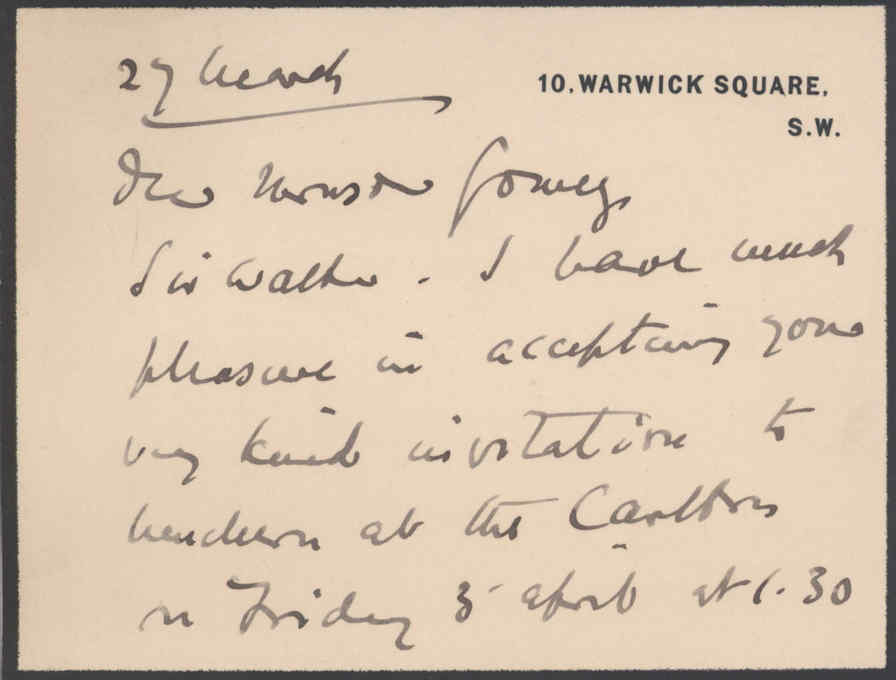 27 March
10. WARWICK SQUARE,
S.W.
Dear
Sir Walter. I have much
pleasure in accepting your
very kind invitation to
luncheon at the Carlton
on Friday 3 April at 1.30